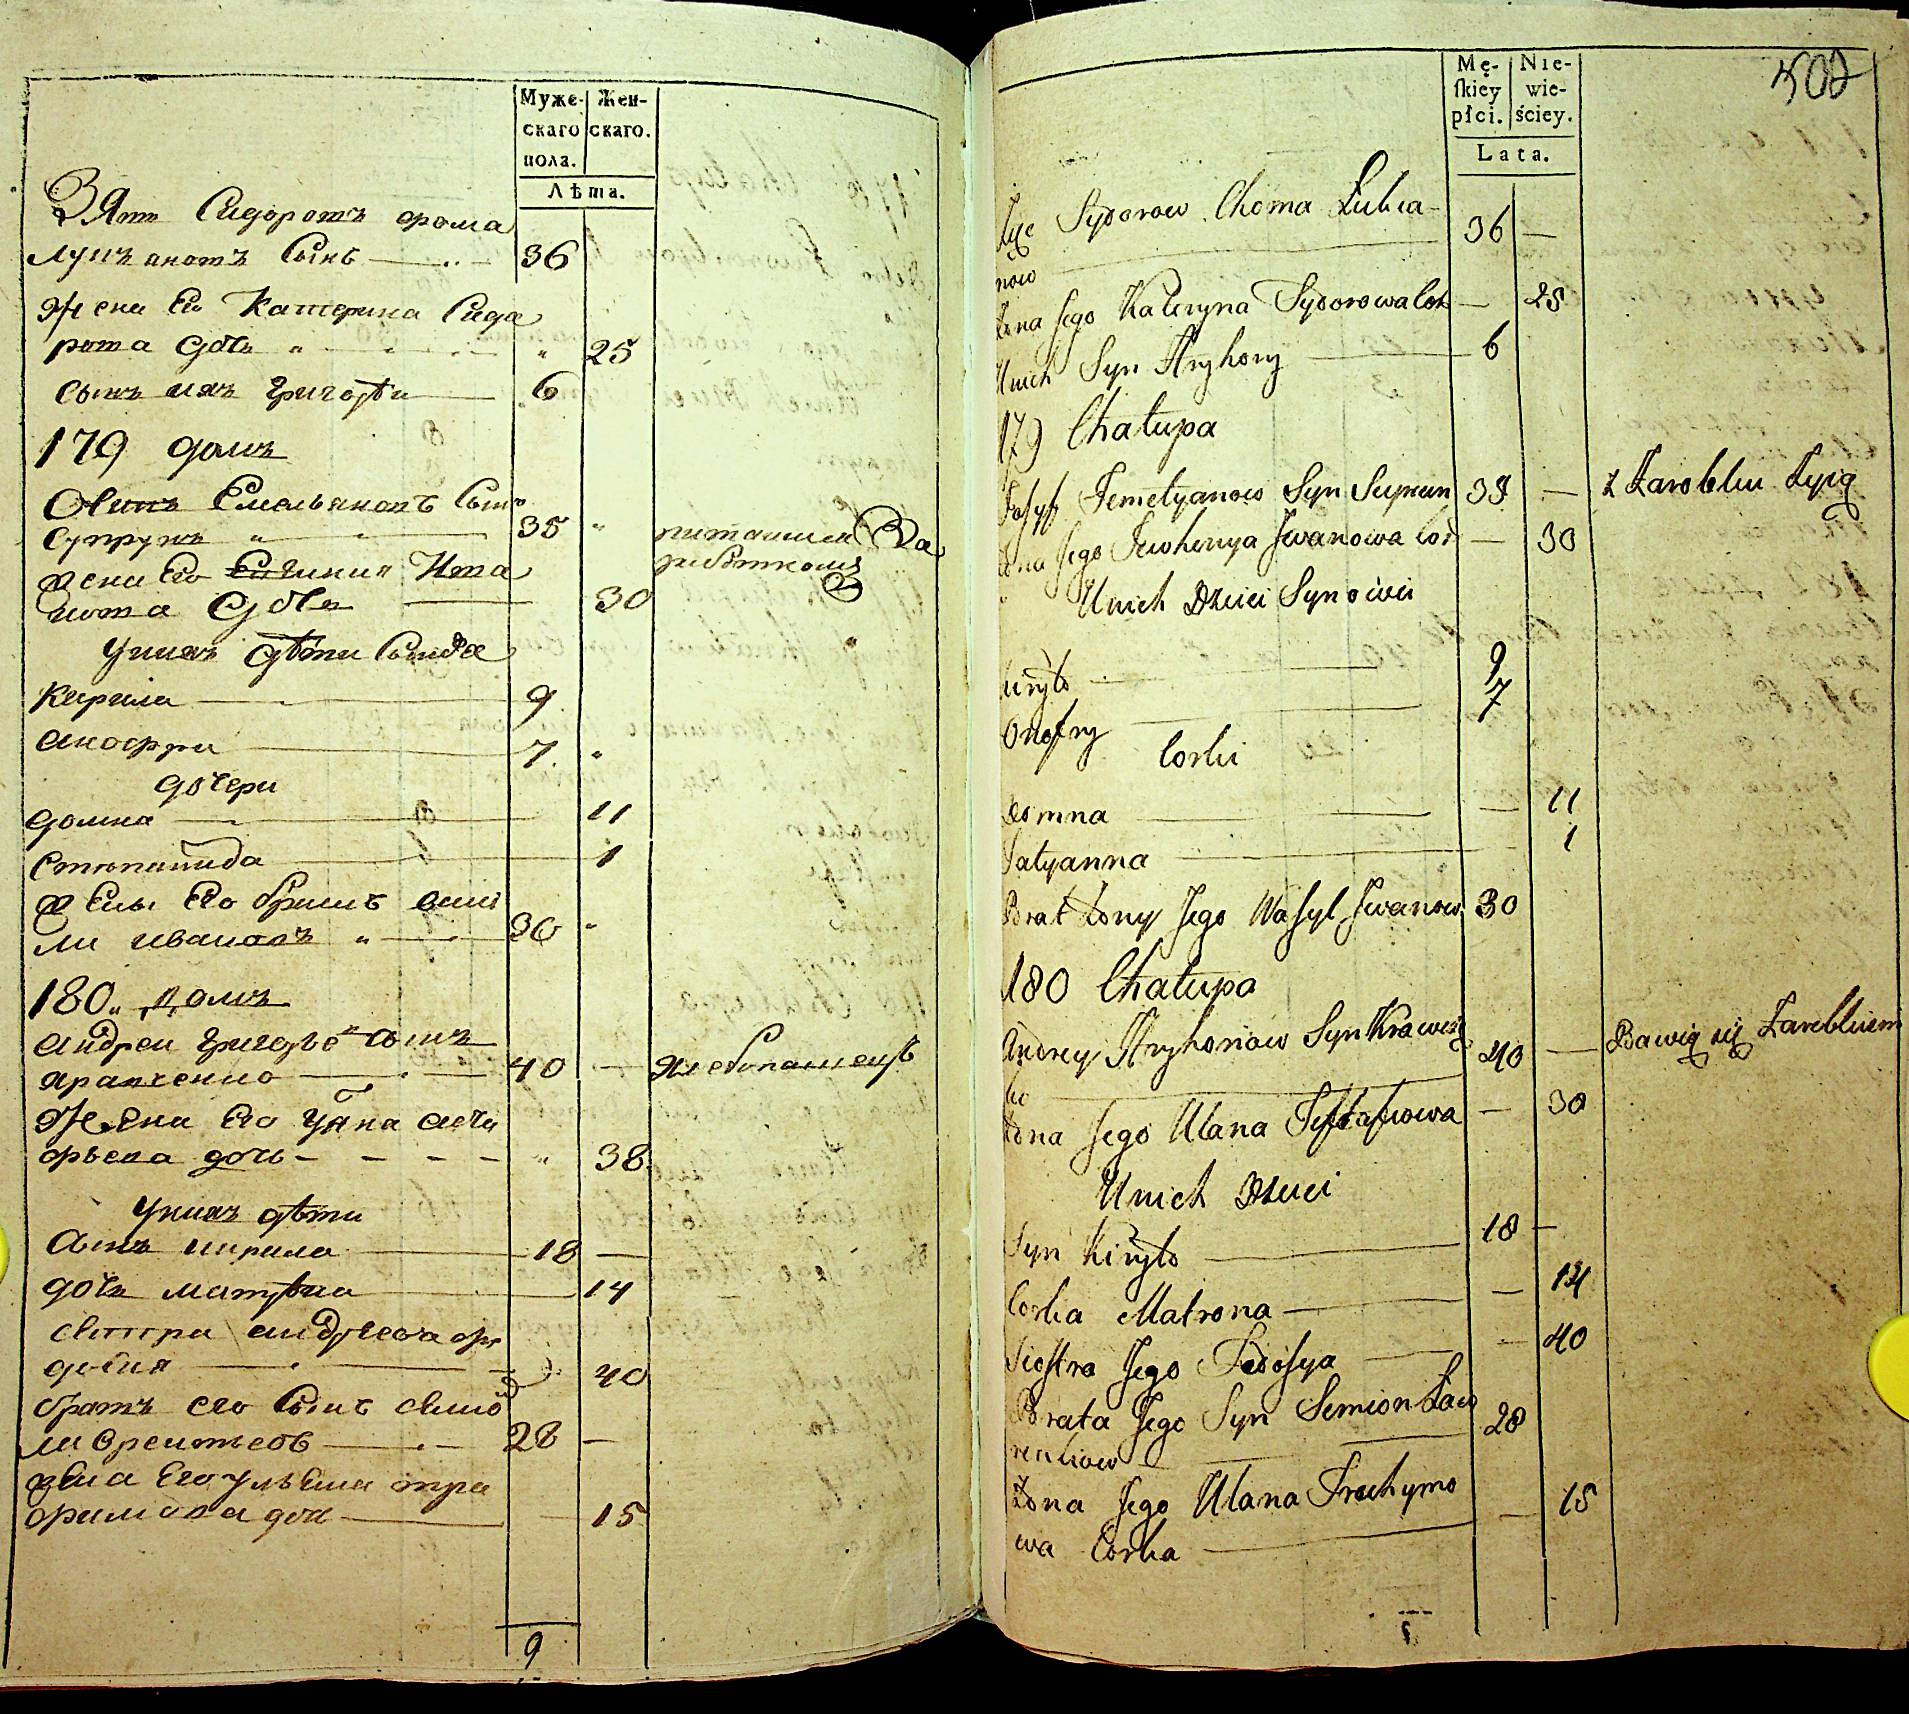 Муже-
скаго
пола.
Жен-
скаго.
Лѣта.
Зять Сидоровъ Фома
Лукъяновъ Сынъ 36
Жена Его Катерина Сидо
рова дочь 25
Сынъ ихъ Григорѣи 6
179 домъ
Емельяновъ Сынъ
Супрунъ 35
питаиця За
работкомъ
жена Его Ива
нова дочь 30
У нихъ дѣти Сынове
Кирила 9
анофри 7
дочери
домна 11
1
жены Его братъ васи
ли ивановъ 30
180 домъ
андреи Григорьевъ Сынъ
кравченко 40
Хлебопашецъ
Жена Его Уляна
дочь 38
У нихъ дѣти
Сынъ кирила 18
дочь матрѣна 14
Сестра андреева фе
досия 40
братъ его Сынъ Семіо
лаврентьевъ 28
жена Его Ульяна тра
фимова доч 15
9
502
Mę-
skiey
płci.
Nie-
wie-
ściey.
Lata.
Sydorow Choma Łukia-
now 36 —
Żona Jego Kateryna Sydorowa Cor — 25
Unich Syn Hryhory 6
179 Chałupa
Josyf Jemelyanow Syn Suprun 35 — z Zarobku żyią
Żona Jego Jewhenya Jwanowa Cor — 30
Unich Dzieci Synowie
Kiryło 9
Onofry 7
Corki
Domna — 11
Tatyanna 1
Brat Żony Jego Wasyl Jwanow 30
180 Chałupa
Andrey Hryhoriow Syn Krawczę
ko 40 — Bawią się Zarobkiem
Żona Jego Ulana — 30
Unich Dzieci
Syn Kiryło 18 —
Corka Matrona — 14
Siostra Jego Fedosya — 40
Brata Jego Syn Semion Ław
renliow 28
Żona Jego Ulana Trochymo
wa Corka — 15